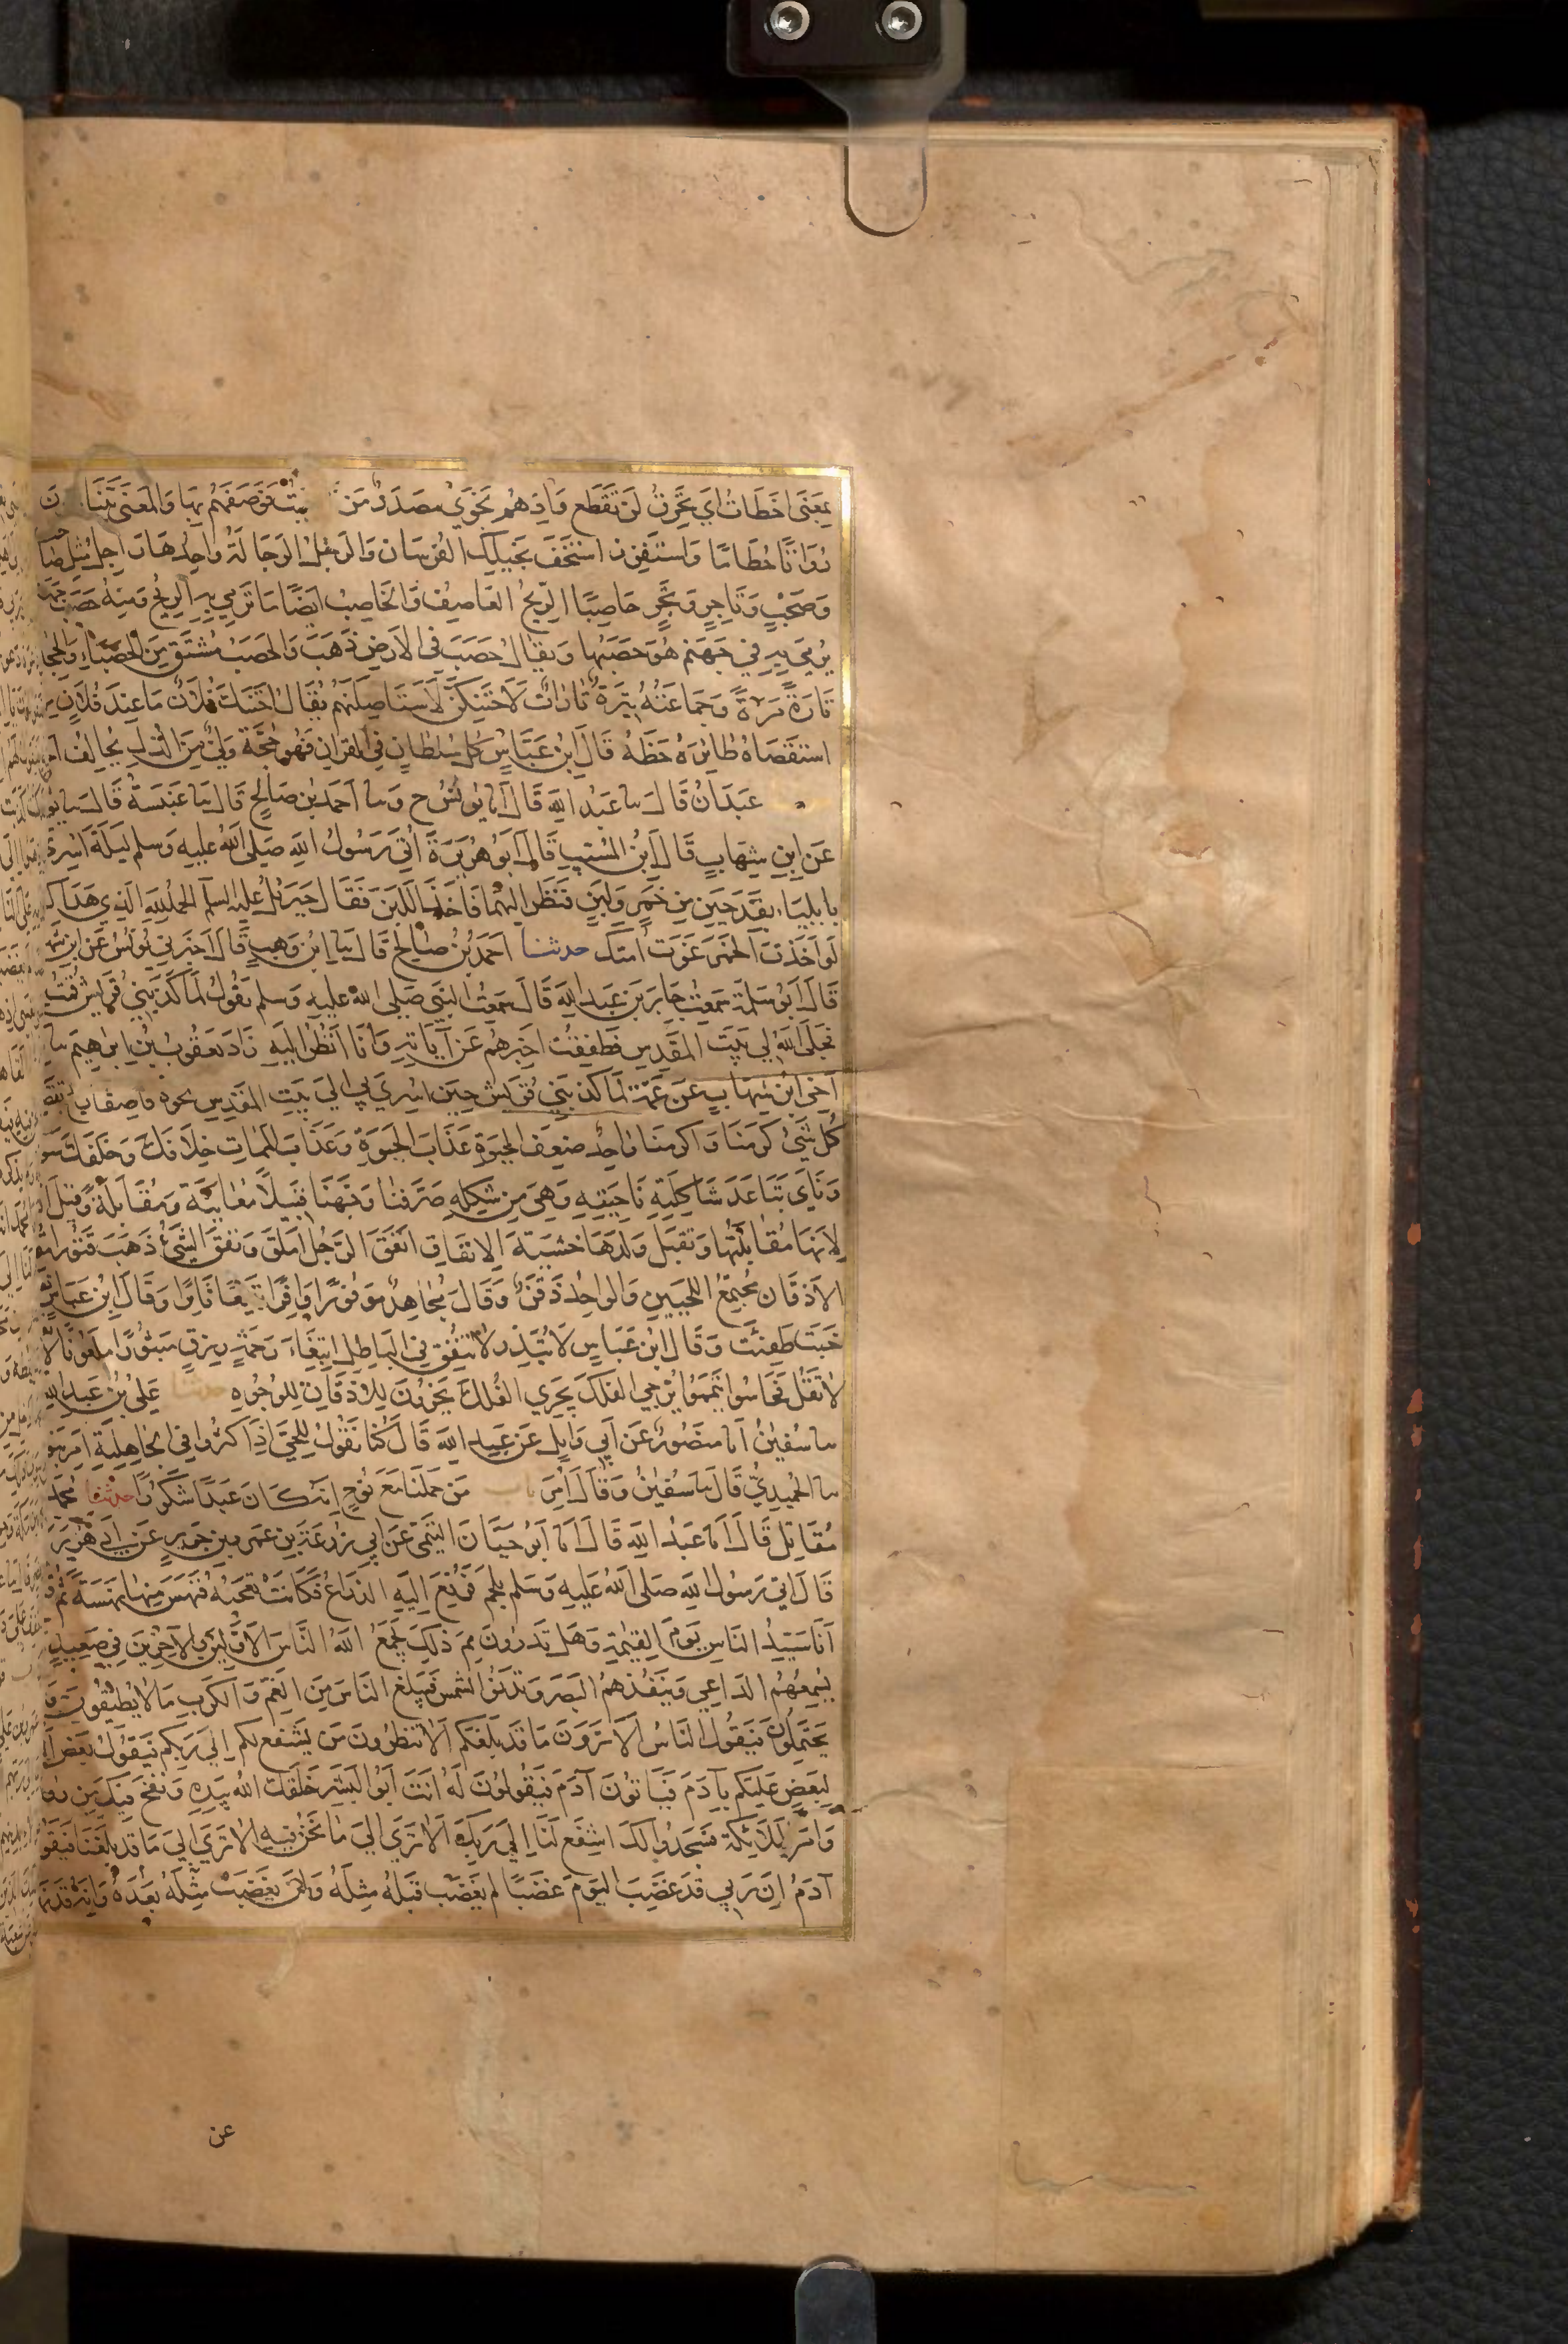 بِمَعْنَى اَخْطَاتُ اَيْ تَخْرِقُ لَنْ تَقْطَعَ وَاِذْ هُمْ نَجْوَى مَصْدَرٌ مِنْ فَوَصَفَهُمْ بِهَا وَالْمَعْنَى يَتَنَا
رُفَاتًا حُطَامًا وَاسْتَفْزِزْ اسْتَخِفَّ بِخَيْلِكَ الْفُرْسَانِ وَالرَّجْلُ الرَّجَالَةُ وَاحِدُهَا رَاجِلٌ مِثْلُ صَا
وَصَحْبٍ وَتَاجِرٍ وَتَجْرٍ حَاصِبًا الرِّيحُ الْعَاصِفُ وَالْحَاصِبُ اَيْضًا مَا تَرْمِي بِهِ الرِّيحُ وَمِنْهُ حَصَبُ
يُرْمَى بِهِ فِي جَهَنَّمَ هُوَ حَصَبُهَا وَيُقَالُ حَصَبَ فِي الْاَرْضِ ذَهَبَ وَالْحَصَبُ مُشْتَقٌّ مِنَ الْحَصْبَاءِ وَالْحِجَا
تَارَةً مَرَّةً وَجَمَاعَتُهُ تِيَرَةٌ تَارَاتٌ لَاَحْتَنِكَنَّ لَاَسْتَاصِلَنَّهُمْ يُقَالُ احْتَنَكَ فُلَانٌ مَا عِنْدَ فُلَانٍ مِنْ
اسْتَقْصَاهُ طَايِرَهُ حَظَّهُ قَالَ ابْنُ عَبَّاسٍ كُلُّ سُلْطَانٍ فِي الْقُرْانِ فَهُوَ حُجَّةٌ وَلِيٌّ مِنَ الذُّلِّ يُحَالِفْ
عَبْدَانُ قَالَ سا عَبْدُ اللَّهِ قَالَ اَنا يُونُسُ ح وَسا اَحْمَدُ بْنُ صَالِحٍ قَالَ سا عَنْبَسَةُ قَالَ سا
عَنِ ابْنِ شِهَابٍ قَالَ ابْنُ الْمُسَيَّبِ قَالَ اَبُو هُرَيْرَةَ اُتِيَ رَسُولُ اللَّهِ صَلَّى اللَّهُ عَلَيْهِ وَسَلَّمَ لَيْلَةَ اُسْرِيَ
بِاِيلِيَاءَ بِقَدَحَيْنِ مِنْ خَمْرٍ وَلَبَنٍ فَنَظَرَ اِلَيْهِمَا فَاَخَذَ اللَّبَنَ فَقَالَ جِبْرَئِلُ عَلَيْهِ السَّلَمُ الْحَمْدُ لِلَّهِ الَّذِي هَدَاكَ
لَوْ اَخَذْتَ الْخَمْرَ غَوَتْ اُمَّتُكَ حدثنا اَحْمَدُ بْنُ صَالِحٍ قَالَ سا ابْنُ وَهْبٍ قَالَ اَخْبَرَنِي يُونُسُ عَنِ ابْنِ شِهَ
قَالَ اَبُو سَلَمَةَ سَمِعْتُ جَابِرَ بْنَ عَبْدِ اللَّهِ قَالَ سَمِعْتُ النَّبِيَّ صَلَّى اللَّهُ عَلَيْهِ وَسَلَّمَ يَقُولُ لَمَّا كَذَّبَنِي قُرَيْشٌ قُمْتُ
فَجَلَّى اللَّهُ لِي بَيْتَ الْمَقْدِسِ فَطَفِقْتُ اُخْبِرُهُمْ عَنْ آيَاتِهِ وَاَنَا اَنْظُرُ اِلَيْهِ زَادَ يَعْقُوبُ بْنُ اِبْرٰهِيمَ سا
اَخِي ابْنِ شِهَابٍ عَنْ عَمِّهِ لَمَّا كَذَّبَنِي قُرَيْشٌ حِينَ اُسْرِيَ بِي اِلَى بَيْتِ الْمَقْدِسِ نَحْوَهُ قَاصِفًا
كُلَّ شَيْءٍ كَرَّمْنَا وَاَكْرَمْنَا وَاحِدٌ ضِعْفَ الْحَيٰوةِ عَذَابَ الْحَيٰوةِ وَعَذَابَ الْمَمَاتِ خِلَافَكَ وَخَلْفَكَ سَوَ
وَنَأَى تَبَاعَدَ شَاكِلَتِهِ نَاحِيَتِهِ وَهِيَ مِنْ شَكْلِهِ صَرَّفْنَا وَجَّهْنَا قَبِيلًا مُعَايَنَةً وَمُقَابَلَةً وَقِيلَ
لِاَنَّهَا مُقَابِلَتُهَا وَتَقْبَلُ وَلَدَهَا خَشْيَةَ الْاِنْفَاقِ اَنْفَقَ الرَّجُلُ اَمْلَقَ وَنَفَقَ الشَّيْءُ ذَهَبَ قَتُورًا
الْاَذْقَانِ مُجْتَمَعُ اللَّحْيَيْنِ وَالْوَاحِدُ ذَقَنٌ وَقَالَ مُجَاهِدٌ مَوْفُورًا وَافِرًا تَبِيعًا ثَايِرًا وَقَالَ ابْنُ عَبَّاسٍ
خَبَتْ طَفِئَتْ وَقَالَ ابْنُ عَبَّاسٍ لَا تُبَذِّرْ لَا تُنْفِقْ فِي الْبَاطِلِ ابْتِغَاءَ رَحْمَةٍ رِزْقٍ مَثْبُورًا مَلْعُونًا
لَا تَقُلْ فَجَاسُوا تَيَمَّمُوا يُزْجِي الْفُلْكَ يُجْرِي الْفُلْكَ يَخِرُّونَ لِلْاَذْقَانِ لِلْوُجُوهِ عَلِيُّ بْنُ عَبْدِ اللَّهِ
سا سُفْيٰنُ اَنا مَنْصُورٌ عَنْ اَبِي وَايِلٍ عَنْ عَبْدِ اللَّهِ قَالَ كُنَّا نَقُولُ لِلْحَيِّ اِذَا كَثُرُوا فِي الْجَاهِلِيَّةِ اَمِرَ بَنُو
سا الْحُمَيْدِيُّ قَالَ سا سُفْيٰنُ وَقَالَ اَمِرَ مَنْ حَمَلْنَا مَعَ نُوحٍ اِنَّهُ كَانَ عَبْدًا شَكُورًا حدثنا مُحَمَّدُ
مُقَاتِلٍ قَالَ اَنا عَبْدُ اللَّهِ قَالَ اَنا اَبُو حَيَّانَ التَّيْمِيُّ عَنْ اَبِي زُرْعَةَ بْنِ عَمْرِو بْنِ جَرِيرٍ عَنْ اَبِي هُرَيْرَ
قَالَ اُتِيَ رَسُولُ اللَّهِ صَلَّى اللَّهُ عَلَيْهِ وَسَلَّمَ بِلَحْمٍ فَرُفِعَ اِلَيْهِ الذِّرَاعُ فَكَانَتْ تُعْجِبُهُ فَنَهَسَ مِنْهَا نَهْسَةً ثُمَّ
اَنَا سَيِّدُ النَّاسِ يَوْمَ الْقِيٰمَةِ وَهَلْ تَدْرُونَ مِمَّ ذٰلِكَ يَجْمَعُ اللَّهُ النَّاسَ الْاَوَّلِينَ وَالْآخِرِينَ فِي صَعِيدٍ
يُسْمِعُهُمُ الدَّاعِي وَيَنْفُذُهُمُ الْبَصَرُ وَتَدْنُو الشَّمْسُ فَيَبْلُغُ النَّاسَ مِنَ الْغَمِّ وَالْكَرْبِ مَا لَا يُطِيقُونَ وَ
يَحْتَمِلُونَ فَيَقُولُ النَّاسُ اَلَا تَرَوْنَ مَا قَدْ بَلَغَكُمْ اَلَا تَنْظُرُونَ مَنْ يَشْفَعُ لَكُمْ اِلَى رَبِّكُمْ فَيَقُولُ بَعْضُ
لِبَعْضٍ عَلَيْكُمْ بِآدَمَ فَيَاتُونَ آدَمَ فَيَقُولُونَ لَهُ اَنْتَ اَبُو الْبَشَرِ خَلَقَكَ اللَّهُ بِيَدِهِ وَنَفَخَ فِيكَ مِنْ رُو
وَاَمَرَ الْمَلَائِكَةَ فَسَجَدُوا لَكَ اشْفَعْ لَنَا اِلَى رَبِّكَ اَلَا تَرَى اِلَى مَا نَحْنُ فِيهِ اَلَا تَرَى اِلَى مَا قَدْ بَلَغَنَا فَيَقُو
آدَمُ اِنَّ رَبِّي قَدْ غَضِبَ الْيَوْمَ غَضَبًا لَمْ يَغْضَبْ قَبْلَهُ مِثْلَهُ وَلَنْ يَغْضَبَ مِثْلَهُ بَعْدَهُ وَاِنَّهُ قَدْ
عن